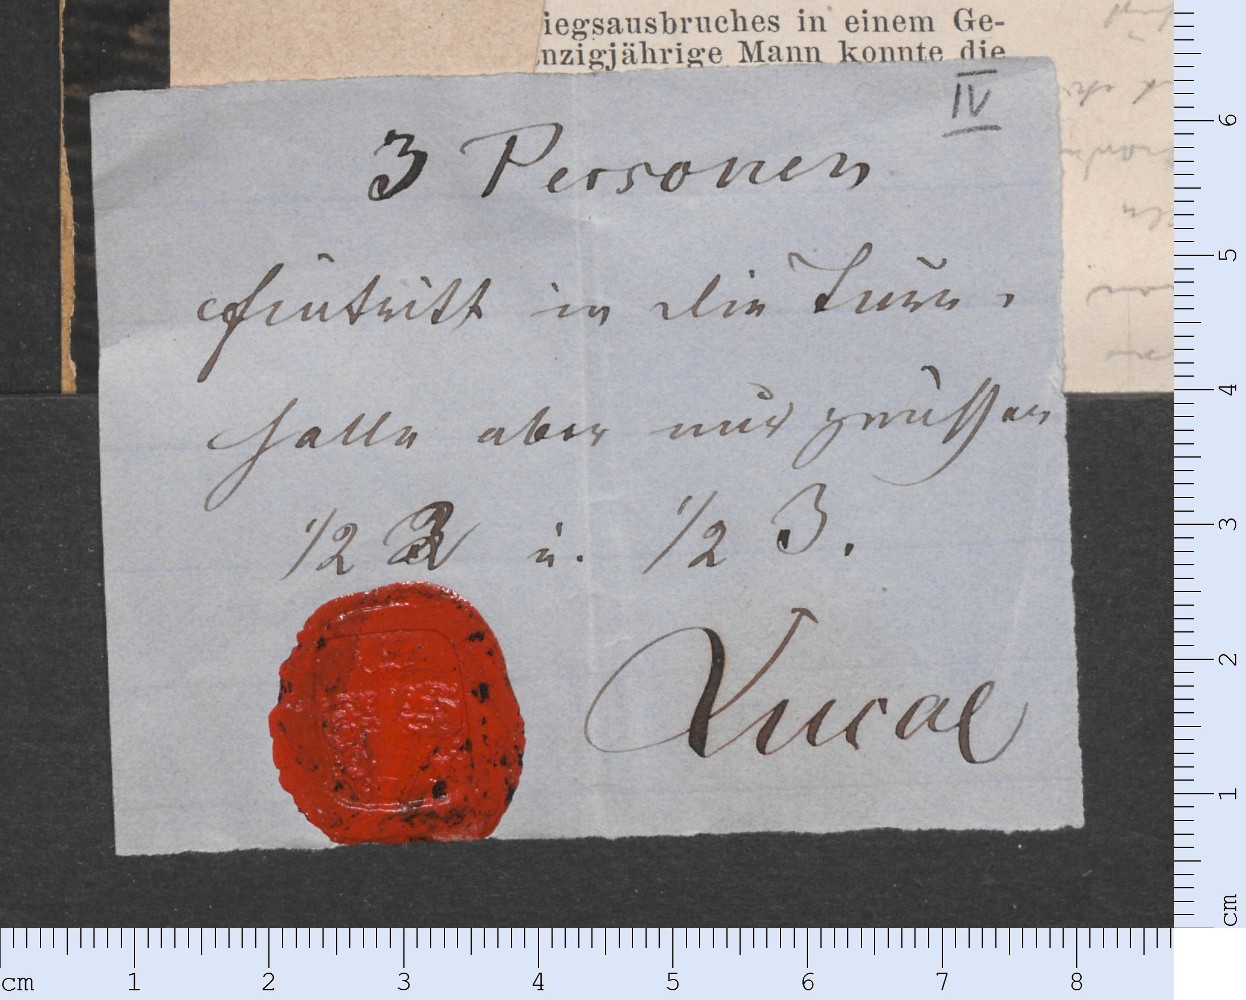 iegsausbruches in einem Ge-
nzigjährige Mann konnte die
IV
3 Personen
Eintritt in die Turn-
halle aber nur zwischen
1/2 2 u. 1/2 3.
6
5
4
3
2
1
cm
cm 1 2 3 4 5 6 7 8